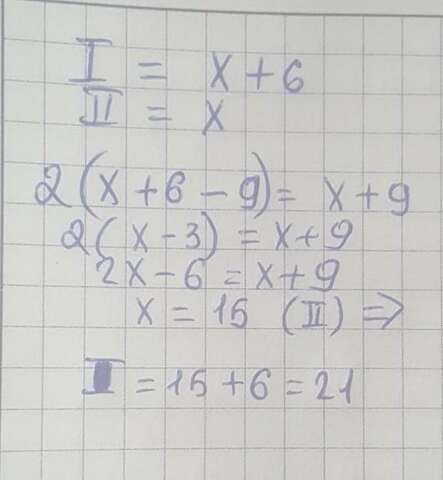 I = x + 6
II = x
2(x + 6 - 9) = x + 9
2(x - 3) = x + 9
2x - 6 = x + 9
x = 15 (II) ⇒
I = 15 + 6 = 21